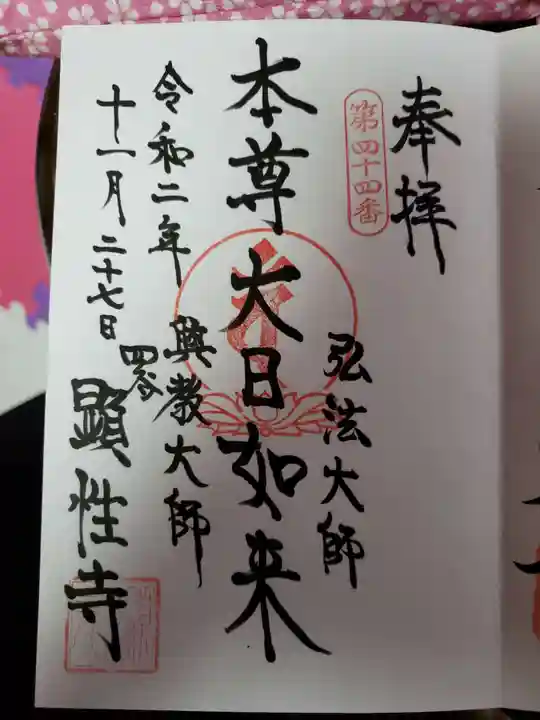 奉拝
第四十四番
弘法大師
本尊大日如来
興教大師
令和二年
十一月二十七日
四谷
顕性寺